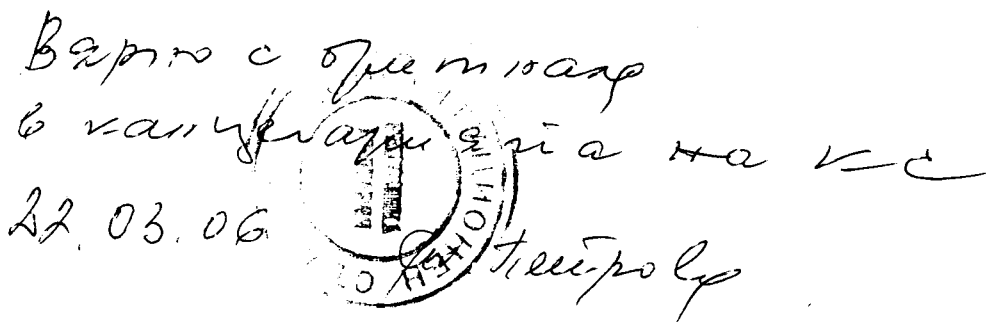 Вярно с оригинала
в канцеларията на КС
22.03.06
Петрова